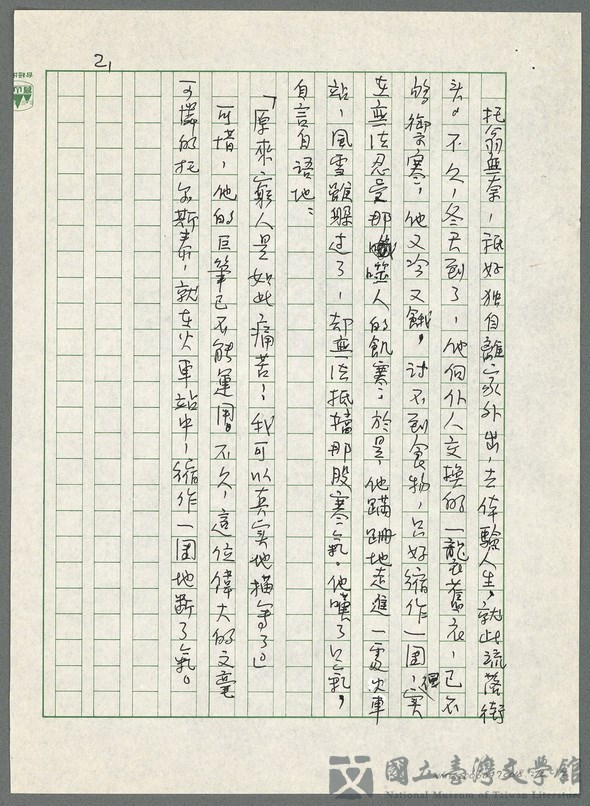 21
托翁無奈，祇好独自離家外出，去体驗人生，就此流落街
头。不久，冬天到了，他向仆人交換的一襲舊衣，已不
够御寒，他又冷又餓，讨不到食物，只好縮作一團，实
在無法忍受那噬人的飢寒；於是，他蹣跚地走進一處火車
站，風雪雖躲过了，却無法抵擋那股寒氣。他嘆了口氣，
自言自语地：
「原來窮人是如此痛苦！我可以真实地描寫了」
可惜，他的巨筆已不能運用。不久，這位偉大的文豪
可憐的托尔斯泰，就在火車站中，縮作一團地斷了氣。
國立臺灣文學館
National Museum of Taiwan Literature